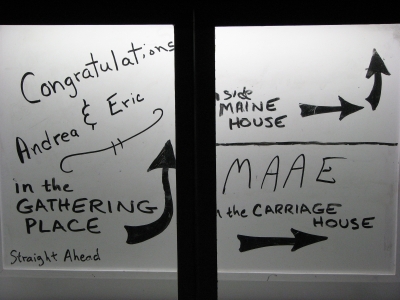 Congratulations
Andrea & Eric
in the
GATHERING
PLACE
Straight Ahead
side
MAINE
HOUSE
MAAE
the CARRIAGE
HOUSE